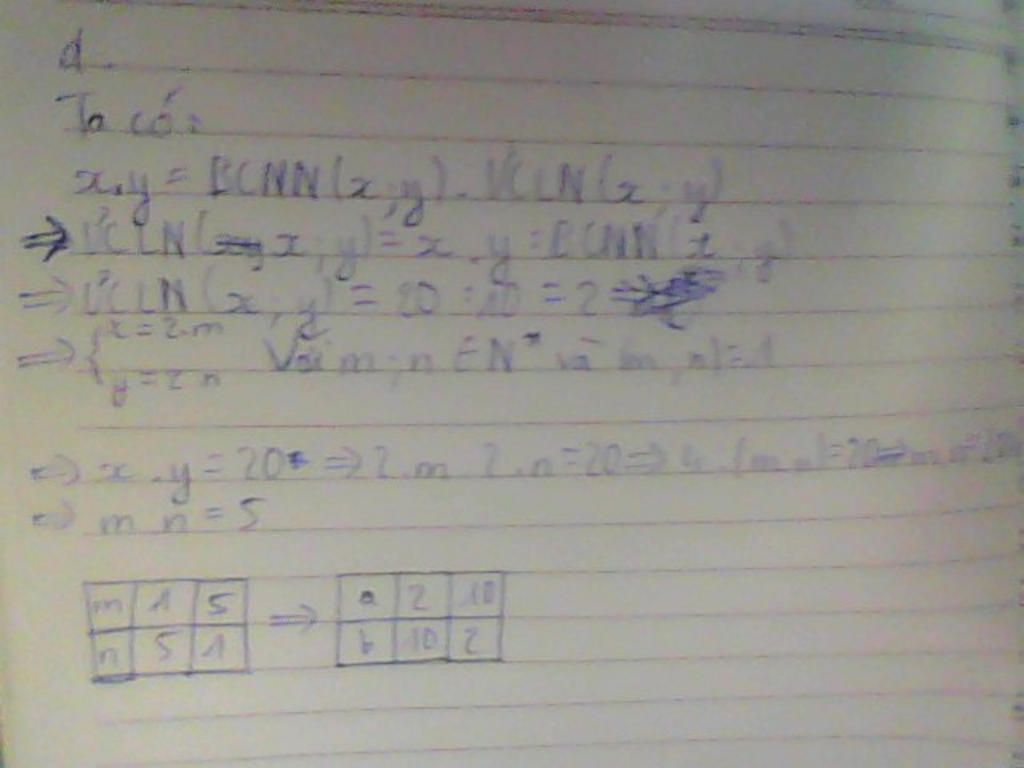 d.
Ta có:
x.y = BCNN(x;y).ƯCLN(x;y)
=> ƯCLN(x;y) = x.y:BCNN(x;y)
=> ƯCLN(x;y) = 20:10 = 2
=> { x = 2.m
y = 2.n Với m;n ∈ N* và (m,n)=1
=> x.y = 20 => 2.m 2.n = 20 => 4.(m.n) = 20
=> m n = 5
m 1 5 => a 2 10
n 5 1 b 10 2